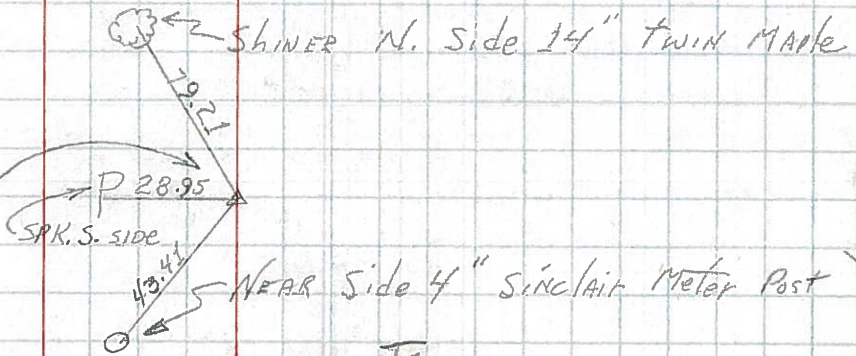 Shiner N. Side 14" twin Maple
79.21
P 28.95
SPK. S. SIDE
43.41
Near Side 4" Sinclair Meter Post